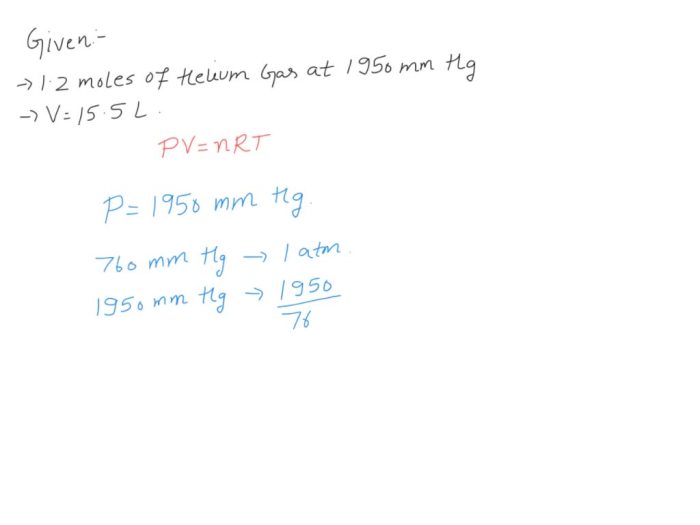 Given:-
→ 1.2 moles of Helium Gas at 1950 mm Hg
→ V=15.5 L.
PV=nRT
P= 1950 mm Hg.
760 mm Hg → 1 atm.
1950 mm Hg → 1950
76